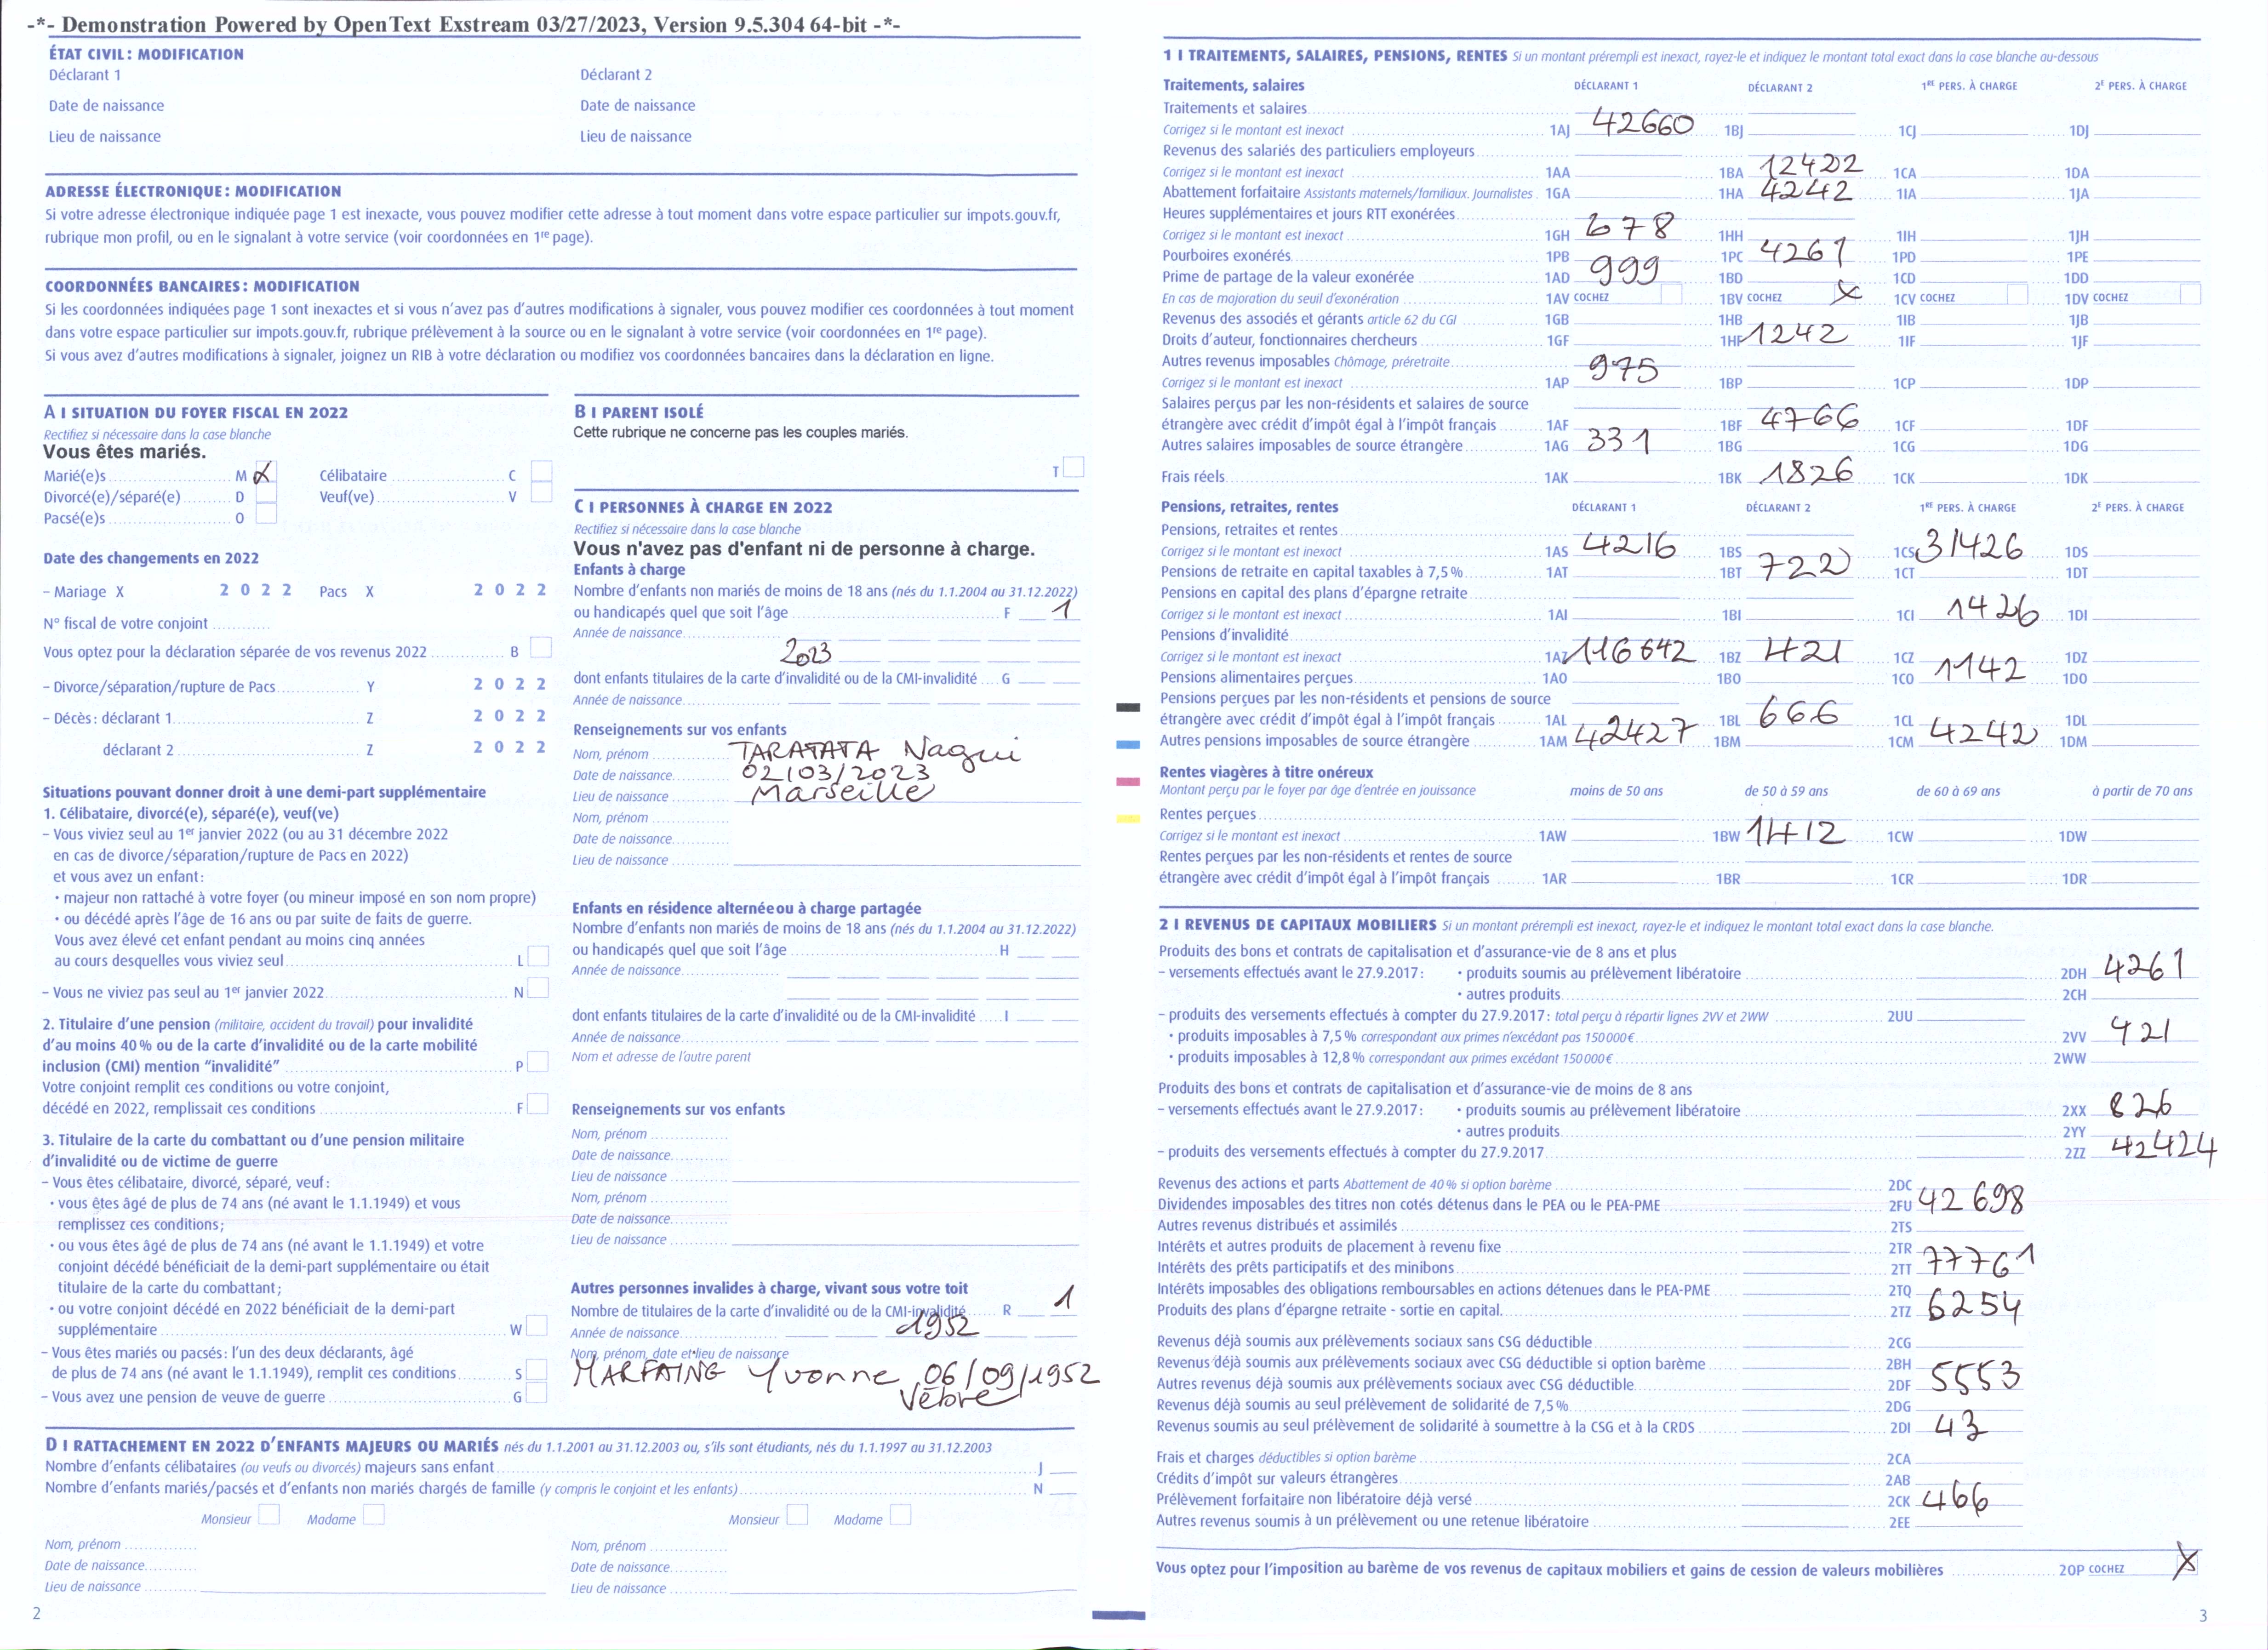 -*- Demonstration Powered by OpenText Exstream 03/27/2023, Version 9.5.304 64-bit -*-
ÉTAT CIVIL : MODIFICATION
Déclarant 1 Déclarant 2
Date de naissance Date de naissance
Lieu de naissance Lieu de naissance
ADRESSE ÉLECTRONIQUE : MODIFICATION
Si votre adresse électronique indiquée page 1 est inexacte, vous pouvez modifier cette adresse à tout moment dans votre espace particulier sur impots.gouv.fr,
rubrique mon profil, ou en le signalant à votre service (voir coordonnées en 1re page).
COORDONNÉES BANCAIRES : MODIFICATION
Si les coordonnées indiquées page 1 sont inexactes et si vous n'avez pas d'autres modifications à signaler, vous pouvez modifier ces coordonnées à tout moment
dans votre espace particulier sur impots.gouv.fr, rubrique prélèvement à la source ou en le signalant à votre service (voir coordonnées en 1re page).
Si vous avez d'autres modifications à signaler, joignez un RIB à votre déclaration ou modifiez vos coordonnées bancaires dans la déclaration en ligne.
A I SITUATION DU FOYER FISCAL EN 2022
Rectifiez si nécessaire dans la case blanche
Vous êtes mariés.
Marié(e)s M X Célibataire C
Divorcé(e)/séparé(e) D Veuf(ve) V
Pacsé(e)s O
Date des changements en 2022
– Mariage X 2 0 2 2 Pacs X 2 0 2 2
N° fiscal de votre conjoint
Vous optez pour la déclaration séparée de vos revenus 2022 B
– Divorce/séparation/rupture de Pacs Y 2 0 2 2
– Décès : déclarant 1 Z 2 0 2 2
déclarant 2 Z 2 0 2 2
Situations pouvant donner droit à une demi-part supplémentaire
1. Célibataire, divorcé(e), séparé(e), veuf(ve)
– Vous viviez seul au 1er janvier 2022 (ou au 31 décembre 2022
en cas de divorce/séparation/rupture de Pacs en 2022)
et vous avez un enfant :
• majeur non rattaché à votre foyer (ou mineur imposé en son nom propre)
• ou décédé après l'âge de 16 ans ou par suite de faits de guerre.
Vous avez élevé cet enfant pendant au moins cinq années
au cours desquelles vous viviez seul L
– Vous ne viviez pas seul au 1er janvier 2022 N
2. Titulaire d'une pension (militaire, accident du travail) pour invalidité
d'au moins 40 % ou de la carte d'invalidité ou de la carte mobilité
inclusion (CMI) mention “invalidité” P
Votre conjoint remplit ces conditions ou votre conjoint,
décédé en 2022, remplissait ces conditions F
3. Titulaire de la carte du combattant ou d'une pension militaire
d'invalidité ou de victime de guerre
– Vous êtes célibataire, divorcé, séparé, veuf :
• vous êtes âgé de plus de 74 ans (né avant le 1.1.1949) et vous
remplissez ces conditions ;
• ou vous êtes âgé de plus de 74 ans (né avant le 1.1.1949) et votre
conjoint décédé bénéficiait de la demi-part supplémentaire ou était
titulaire de la carte du combattant ;
• ou votre conjoint décédé en 2022 bénéficiait de la demi-part
supplémentaire W
– Vous êtes mariés ou pacsés : l'un des deux déclarants, âgé
de plus de 74 ans (né avant le 1.1.1949), remplit ces conditions S
– Vous avez une pension de veuve de guerre G
B I PARENT ISOLÉ
Cette rubrique ne concerne pas les couples mariés.
T
C I PERSONNES À CHARGE EN 2022
Rectifiez si nécessaire dans la case blanche
Vous n'avez pas d'enfant ni de personne à charge.
Enfants à charge
Nombre d'enfants non mariés de moins de 18 ans (nés du 1.1.2004 au 31.12.2022)
ou handicapés quel que soit l'âge F 1
Année de naissance
2023
dont enfants titulaires de la carte d'invalidité ou de la CMI-invalidité G
Année de naissance
Renseignements sur vos enfants
Nom, prénom TARATATA Nagui
Date de naissance 02/03/2023
Lieu de naissance Marseille
Nom, prénom
Date de naissance
Lieu de naissance
Enfants en résidence alternée ou à charge partagée
Nombre d'enfants non mariés de moins de 18 ans (nés du 1.1.2004 au 31.12.2022)
ou handicapés quel que soit l'âge H
Année de naissance
dont enfants titulaires de la carte d'invalidité ou de la CMI-invalidité I
Année de naissance
Nom et adresse de l'autre parent
Renseignements sur vos enfants
Nom, prénom
Date de naissance
Lieu de naissance
Nom, prénom
Date de naissance
Lieu de naissance
Autres personnes invalides à charge, vivant sous votre toit
Nombre de titulaires de la carte d'invalidité ou de la CMI-invalidité R 1
Année de naissance 1952
Nom, prénom, date et lieu de naissance
MARFAING Yvonne 06/09/1952
Vèbre
D I RATTACHEMENT EN 2022 D'ENFANTS MAJEURS OU MARIÉS nés du 1.1.2001 au 31.12.2003 ou, s'ils sont étudiants, nés du 1.1.1997 au 31.12.2003
Nombre d'enfants célibataires (ou veufs ou divorcés) majeurs sans enfant J
Nombre d'enfants mariés/pacsés et d'enfants non mariés chargés de famille (y compris le conjoint et les enfants) N
Monsieur Madame Monsieur Madame
Nom, prénom Nom, prénom
Date de naissance Date de naissance
Lieu de naissance Lieu de naissance
2
1 I TRAITEMENTS, SALAIRES, PENSIONS, RENTES Si un montant prérempli est inexact, rayez-le et indiquez le montant total exact dans la case blanche au-dessous
Traitements, salaires DÉCLARANT 1 DÉCLARANT 2 1RE PERS. À CHARGE 2E PERS. À CHARGE
Traitements et salaires
Corrigez si le montant est inexact 1AJ 42660 1BJ 1CJ 1DJ
Revenus des salariés des particuliers employeurs
Corrigez si le montant est inexact 1AA 1BA 12422 1CA 1DA
Abattement forfaitaire Assistants maternels/familiaux. Journalistes 1GA 1HA 4242 1IA 1JA
Heures supplémentaires et jours RTT exonérées
Corrigez si le montant est inexact 1GH 678 1HH 1IH 1JH
Pourboires exonérés 1PB 1PC 4261 1PD 1PE
Prime de partage de la valeur exonérée 1AD 999 1BD 1CD 1DD
En cas de majoration du seuil d'exonération 1AV COCHEZ 1BV COCHEZ X 1CV COCHEZ 1DV COCHEZ
Revenus des associés et gérants article 62 du CGI 1GB 1HB 1IB 1JB
Droits d'auteur, fonctionnaires chercheurs 1GF 1HF 1242 1IF 1JF
Autres revenus imposables Chômage, préretraite
Corrigez si le montant est inexact 1AP 975 1BP 1CP 1DP
Salaires perçus par les non-résidents et salaires de source
étrangère avec crédit d'impôt égal à l'impôt français 1AF 1BF 4766 1CF 1DF
Autres salaires imposables de source étrangère 1AG 331 1BG 1CG 1DG
Frais réels 1AK 1BK 1826 1CK 1DK
Pensions, retraites, rentes DÉCLARANT 1 DÉCLARANT 2 1RE PERS. À CHARGE 2E PERS. À CHARGE
Pensions, retraites et rentes
Corrigez si le montant est inexact 1AS 4216 1BS 1CS 31426 1DS
Pensions de retraite en capital taxables à 7,5 % 1AT 1BT 722 1CT 1DT
Pensions en capital des plans d'épargne retraite
Corrigez si le montant est inexact 1AI 1BI 1CI 1426 1DI
Pensions d'invalidité
Corrigez si le montant est inexact 1AZ 116642 1BZ 421 1CZ 1DZ
Pensions alimentaires perçues 1AO 1BO 1CO 1142 1DO
Pensions perçues par les non-résidents et pensions de source
étrangère avec crédit d'impôt égal à l'impôt français 1AL 1BL 666 1CL 1DL
Autres pensions imposables de source étrangère 1AM 42427 1BM 1CM 4242 1DM
Rentes viagères à titre onéreux
Montant perçu par le foyer par âge d'entrée en jouissance moins de 50 ans de 50 à 59 ans de 60 à 69 ans à partir de 70 ans
Rentes perçues
Corrigez si le montant est inexact 1AW 1BW 1412 1CW 1DW
Rentes perçues par les non-résidents et rentes de source
étrangère avec crédit d'impôt égal à l'impôt français 1AR 1BR 1CR 1DR
2 I REVENUS DE CAPITAUX MOBILIERS Si un montant prérempli est inexact, rayez-le et indiquez le montant total exact dans la case blanche.
Produits des bons et contrats de capitalisation et d'assurance-vie de 8 ans et plus
– versements effectués avant le 27.9.2017 : • produits soumis au prélèvement libératoire 2DH 4261
• autres produits 2CH
– produits des versements effectués à compter du 27.9.2017 : total perçu à répartir lignes 2VV et 2WW 2UU
• produits imposables à 7,5 % correspondant aux primes n'excédant pas 150 000 € 2VV 421
• produits imposables à 12,8 % correspondant aux primes excédant 150 000 € 2WW
Produits des bons et contrats de capitalisation et d'assurance-vie de moins de 8 ans
– versements effectués avant le 27.9.2017 : • produits soumis au prélèvement libératoire 2XX 826
• autres produits 2YY
– produits des versements effectués à compter du 27.9.2017 2ZZ 42424
Revenus des actions et parts Abattement de 40 % si option barème 2DC
Dividendes imposables des titres non cotés détenus dans le PEA ou le PEA-PME 2FU 42698
Autres revenus distribués et assimilés 2TS
Intérêts et autres produits de placement à revenu fixe 2TR
Intérêts des prêts participatifs et des minibons 2TT 77761
Intérêts imposables des obligations remboursables en actions détenues dans le PEA-PME 2TQ
Produits des plans d'épargne retraite - sortie en capital. 2TZ 6254
Revenus déjà soumis aux prélèvements sociaux sans CSG déductible 2CG
Revenus déjà soumis aux prélèvements sociaux avec CSG déductible si option barème 2BH
Autres revenus déjà soumis aux prélèvements sociaux avec CSG déductible 2DF 5553
Revenus déjà soumis au seul prélèvement de solidarité de 7,5 % 2DG
Revenus soumis au seul prélèvement de solidarité à soumettre à la CSG et à la CRDS 2DI 43
Frais et charges déductibles si option barème 2CA
Crédits d'impôt sur valeurs étrangères 2AB
Prélèvement forfaitaire non libératoire déjà versé 2CK 466
Autres revenus soumis à un prélèvement ou une retenue libératoire 2EE
Vous optez pour l'imposition au barème de vos revenus de capitaux mobiliers et gains de cession de valeurs mobilières 2OP COCHEZ X
3